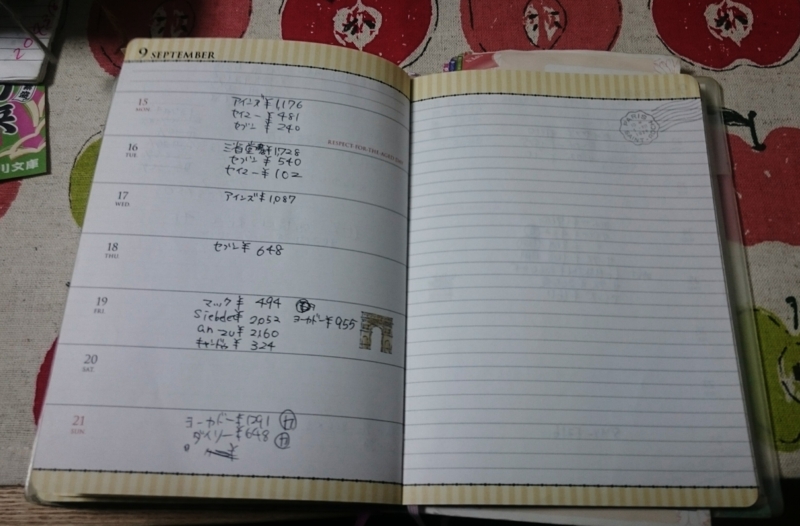 9 SEPTEMBER
15
MON.
アインズ ¥1,176
セイコー ¥481
セブン ¥240
16
TUE.
RESPECT-FOR-THE-AGED DAY
三省堂 ¥1,728
セブン ¥540
セイコー ¥102
17
WED.
アインズ ¥1,087
18
THU.
セブン ¥648
19
FRI.
マック ¥ 494
Siebde¥ 2,052 ヨーカドー ¥955
an zu¥ 2160
キャンドゥ ¥ 324
20
SAT.
21
SUN.
ヨーカドー ¥1,291
デイリー ¥648
PARIS
川文庫